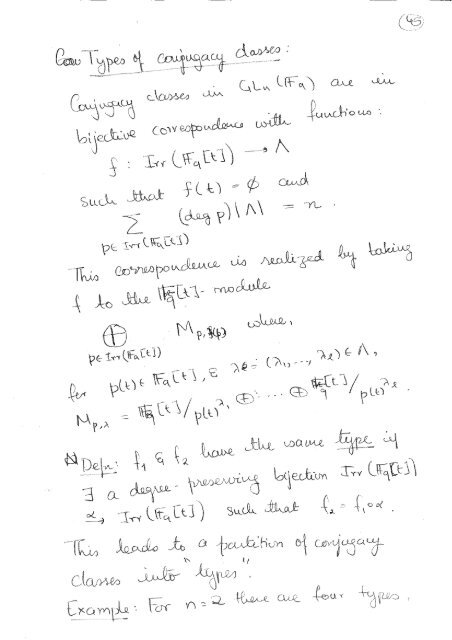 45
Types of conjugacy classes :
Conjugacy classes in GLn (𝔽q) are in
bijective correspondence with functions :
f : Irr (𝔽q[t]) → Λ
Such that f(t) = ϕ and
∑ (deg p) |Λ| = n .
p∈ Irr(𝔽q[t])
This correspondence is realized by taking
f to the 𝔽q[t]- module
⊕ M p, f(p) where,
p∈ Irr(𝔽q[t])
for p(t) ∈ 𝔽q[t], & λ = (λ1, ..., λℓ) ∈ Λ,
M p,λ = 𝔽q[t]/p(t)^λ1 ⊕ ... ⊕ 𝔽q[t]/p(t)^λℓ .
Defn: f1 & f2 have the same type if
∃ a degree - preserving bijection Irr (𝔽q[t])
α→ Irr (𝔽q[t]) such that f2 = f1 ∘ α .
This leads to a partition of conjugacy
classes into "types".
Example : For n = 2 there are four types .